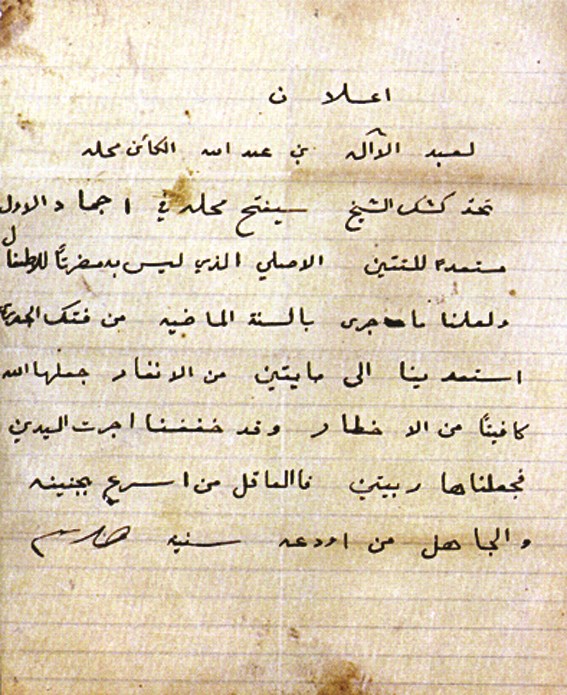 اعلان
لعبد الآله بن عبد الله الكائن محله
تحت كشك الشيخ سيفتح محله في ١ جماد الاول
مستعدا للتتين الاصلي الذي ليس به مضرتاً للاطفال
ولعلنا ما جرى بالسنة الماضيه من فتك الجدري
استعدينا الى مايتين من الانفار جعلها الله
كافيتاً من الاخطار وقد خففنا اجرت اليدين
فجعلناها ربيتين فاالعاقل من اسرع بجنينه
والجاهل من اودعه